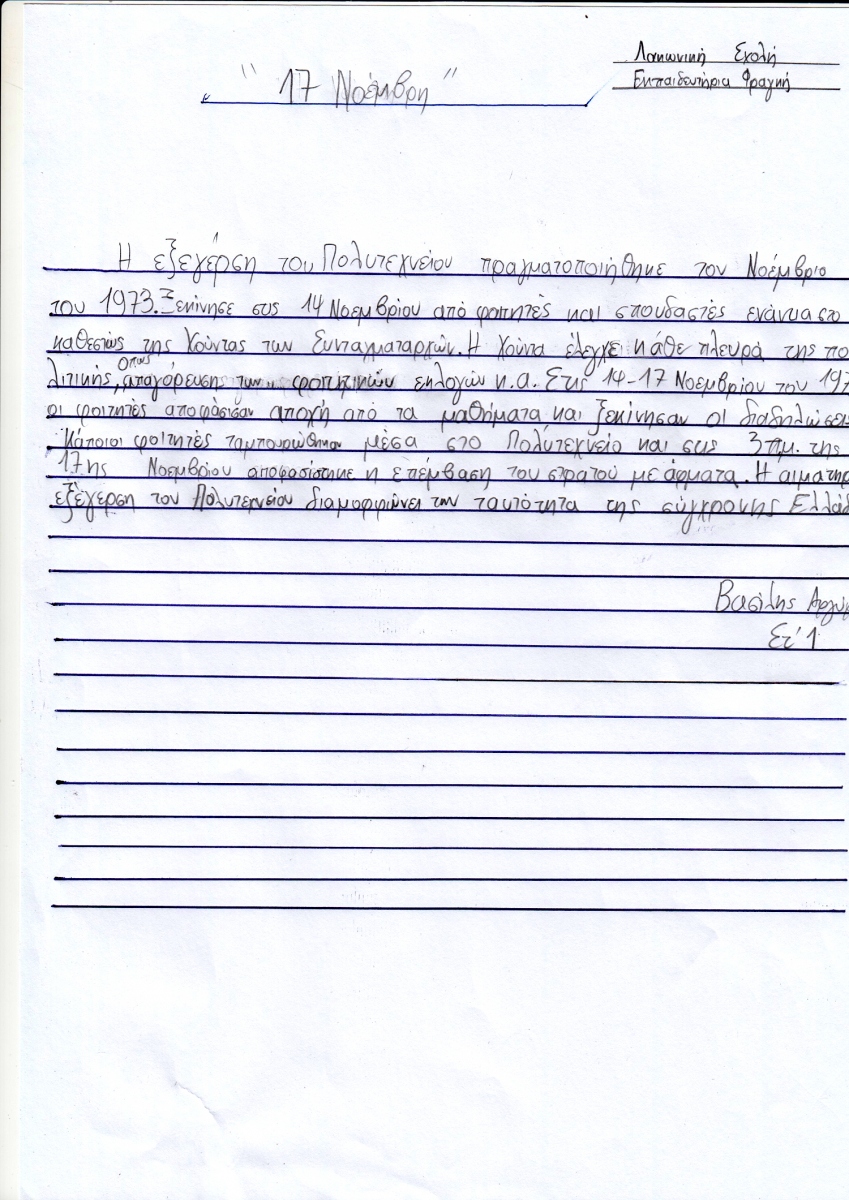 Λακωνική Σχολή
Εκπαιδευτήρια Φραγκή
"17 Νοέμβρη"
Η εξεγέρση του Πολυτεχνείου πραγματοποιήθηκε τον Νοέμβριο
του 1973. Ξεκίνησε στις 14 Νοεμβρίου από φοιτητές και σπουδαστές ενάντια στο
καθεστώς της Χούντας των Συνταγματαρχών. Η Χούντα έλεγχε κάθε πλευρά της πο
λιτικής, όπως απαγόρευση των φοιτητικών εκλογών κ.α. Στις 14-17 Νοεμβρίου του 197
οι φοιτητές αποφάσισαν αποχή από τα μαθήματα και ξεκίνησαν οι διαδηλώσεις
Κάποιοι φοιτητές ταμπουρώθηκαν μέσα στο Πολυτεχνείο και στις 3 π.μ. της
17ης Νοεμβρίου αποφασίστηκε η επέμβαση του στρατού με άρματα. Η αιματηρ
εξέγερση του Πολυτεχνείου διαμορφώνει την ταυτότητα της σύγχρονης Ελλάδ
Βασίλης Αργύρ
Στ'1